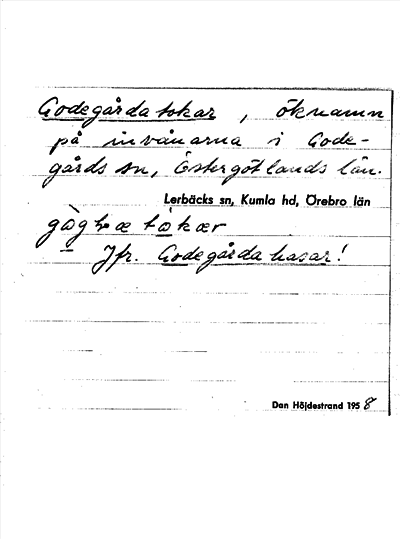 Godegårdatokar, öknamn
på invånarna i Gode-
gårds sn, Östergötlands län.
Lerbäcks sn, Kumla hd, Örebro län
tokær
Jfr. Godegårdahasar!
Dan Höjdestrand 1958